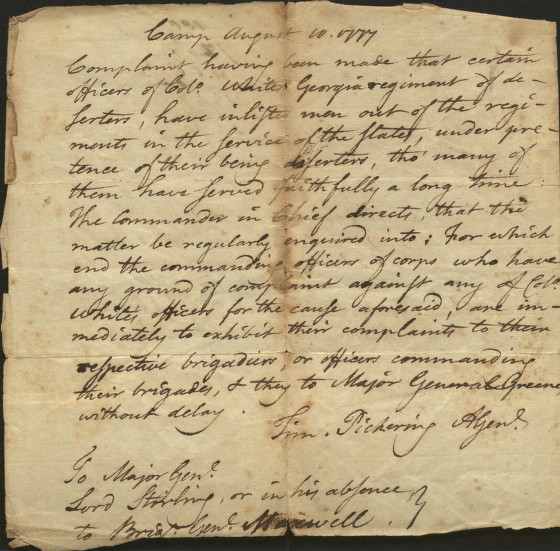 Camp August 10. 1777
Complaint having been made that certain
officers of Colo. Whites Georgia regiment of de-
serters, have inlisted men out of the regi-
ments in the service of the States, under pre-
tence of their being deserters, tho' many of
them have served faithfully a long time:
The Commander in Chief directs, that the
matter be regularly enquired into: For which
end the commanding officers of corps who have
any ground of complaint against any of Colo.
White's officers for the cause aforesaid, are im-
mediately to exhibit their complaints to their
respective brigadiers, or officers commanding
their brigades, & they to Major General Greene
without delay.
Tim. Pickering AGenl.
To Major Genl.
Lord Stirling, or in his absence
to Brigr. Genl. Maxwell.